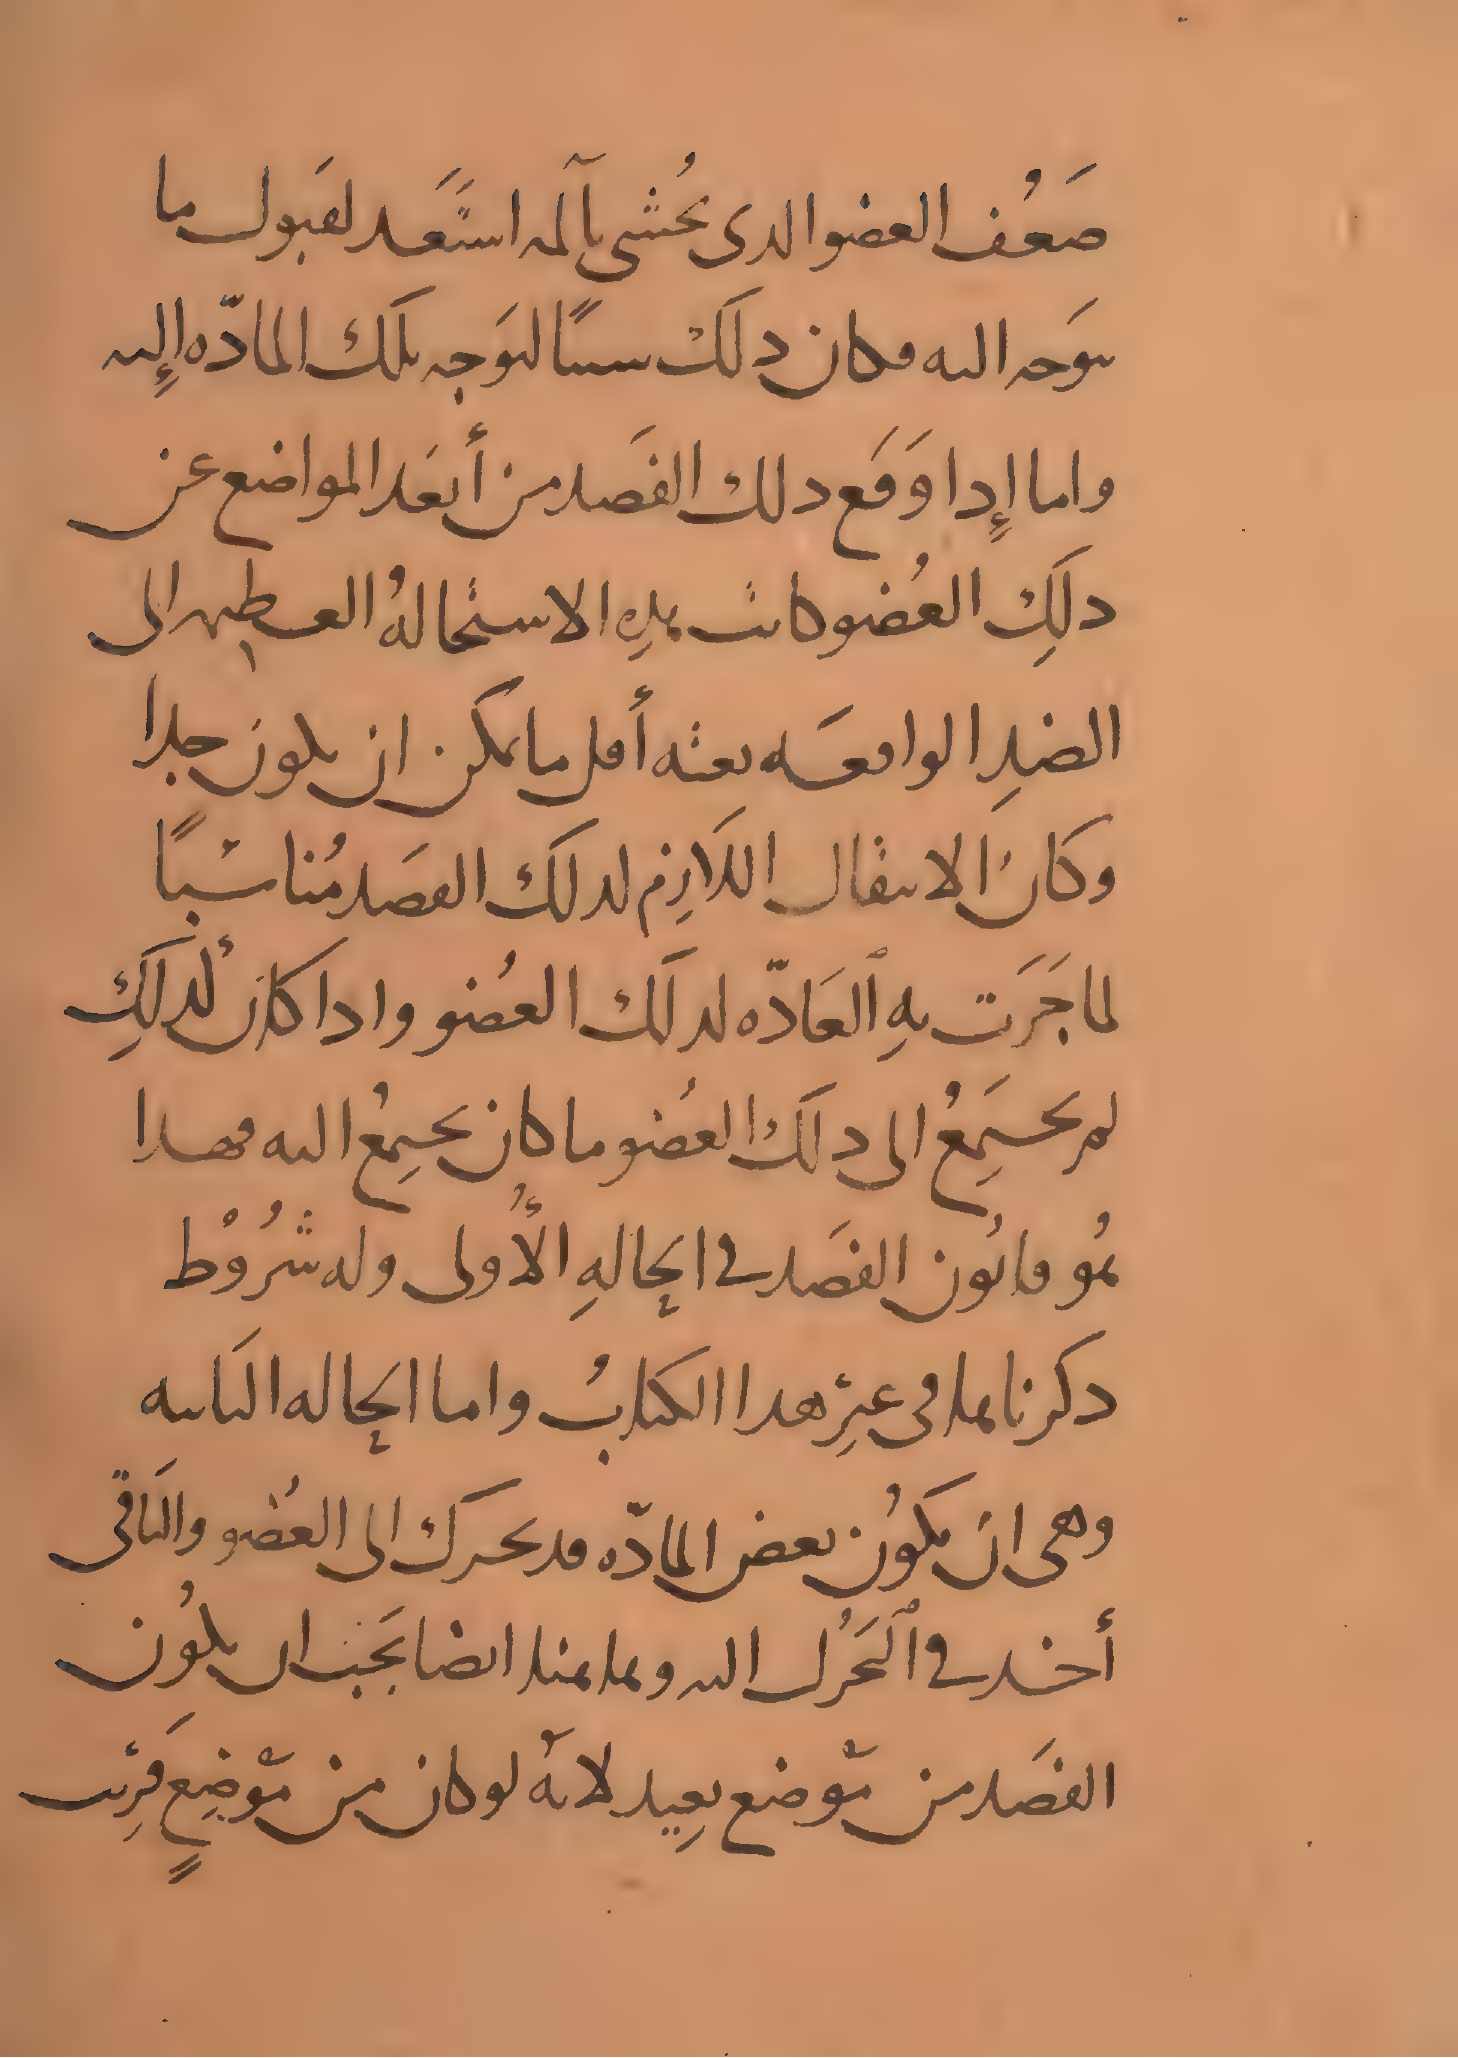 ضَعُف العضو الذى يُخشى تألمه استَعَد لقَبول ما
يتوَجه اليه فكان ذلكَ سببًا لتوَجه تلكَ المادّه إليه
واما إذا وَقَع ذلك الفَصد من أبعَد المواضع عن
ذلَكِ العُضو كانت هذِه الاستحالةُ العـظيمه الى
الضدِ الواقعَه بغته أقل ما يمكن ان يكون جدا
وكَانَ الانتقال اللَازِم لذلكَ الفصَد مُناسبًا
لما جَرَت بهِ ٱلعَادّه لذلَك العُضو واذا كان كذلَكِ
لم يجتَمِعُ الى ذلَكَ العضُو ما كان يجتمِعُ اليه فهذا
هُو قانُون الفصَد في الحالهِ الأُولى وله شُرُوْط
ذكرناها فى غيرِ هذا الكتابُ واما الحاله الثَانيه
وهى ان يَكوُن بعض المادّه قد تحَرك الى العُضو والبَاقى
أخذ في ٱلتَحَرُك اليه وهاهنا ايضا يَجب ان يكوُن
الفصَد من مَوْضع بعِيد لانهُ لو كان من مَوْضِعٍ قَرِيب